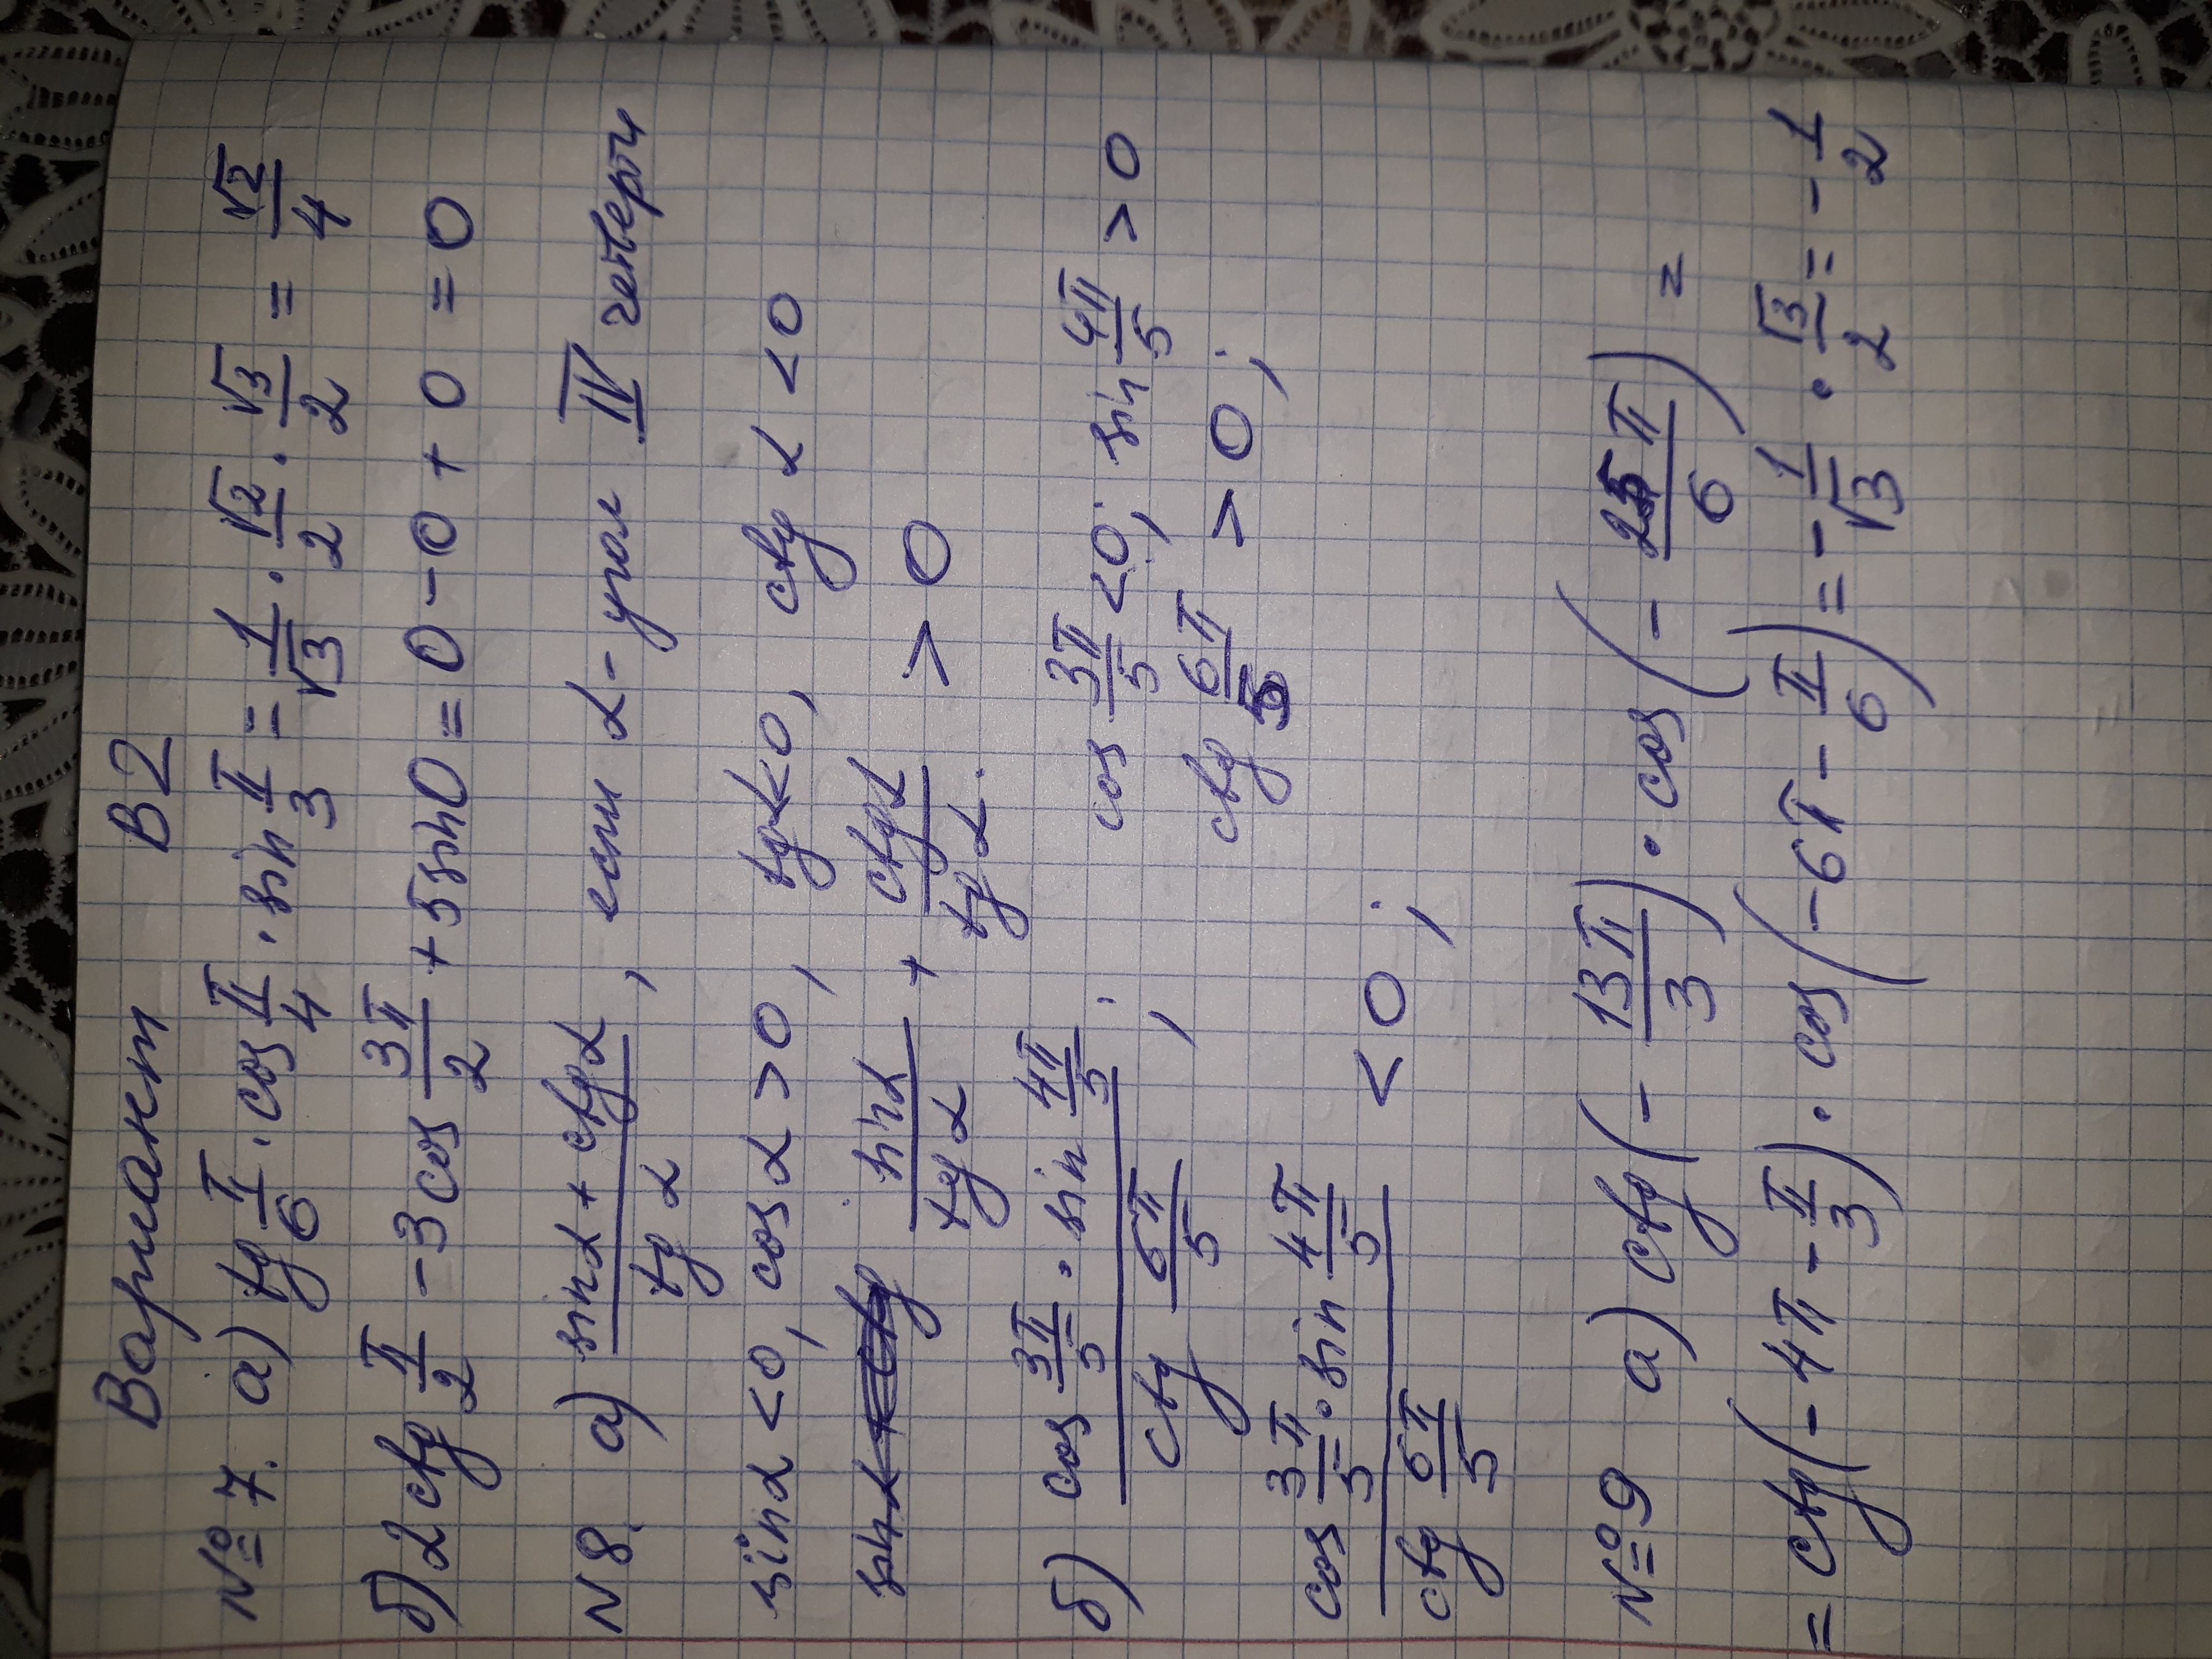 Вариант В2
№ 7. а) tg π/6 · cos π/4 · sin π/3 = 1/√3 · √2/2 · √3/2 = √2/4
б) 2ctg π/2 - 3cos 3π/2 + 5sin0 = 0 - 0 + 0 = 0
N 8. а) (sinα + ctgα)/tgα, если α - угол IV четверти
sinα < 0, cosα > 0, tgα<0, ctgα < 0
sinα/tgα + ctgα/tgα > 0
б) (cos 3π/5 · sin 4π/5)/(ctg 6π/5); cos 3π/5 < 0; sin 4π/5 > 0
ctg 6π/5 > 0;
(cos 3π/5 · sin 4π/5)/(ctg 6π/5) < 0;
№ 9 а) ctg(- 13π/3) · cos(- 25π/6) =
= ctg(- 4π - π/3) · cos(-6π - π/6) = - 1/√3 · √3/2 = - 1/2